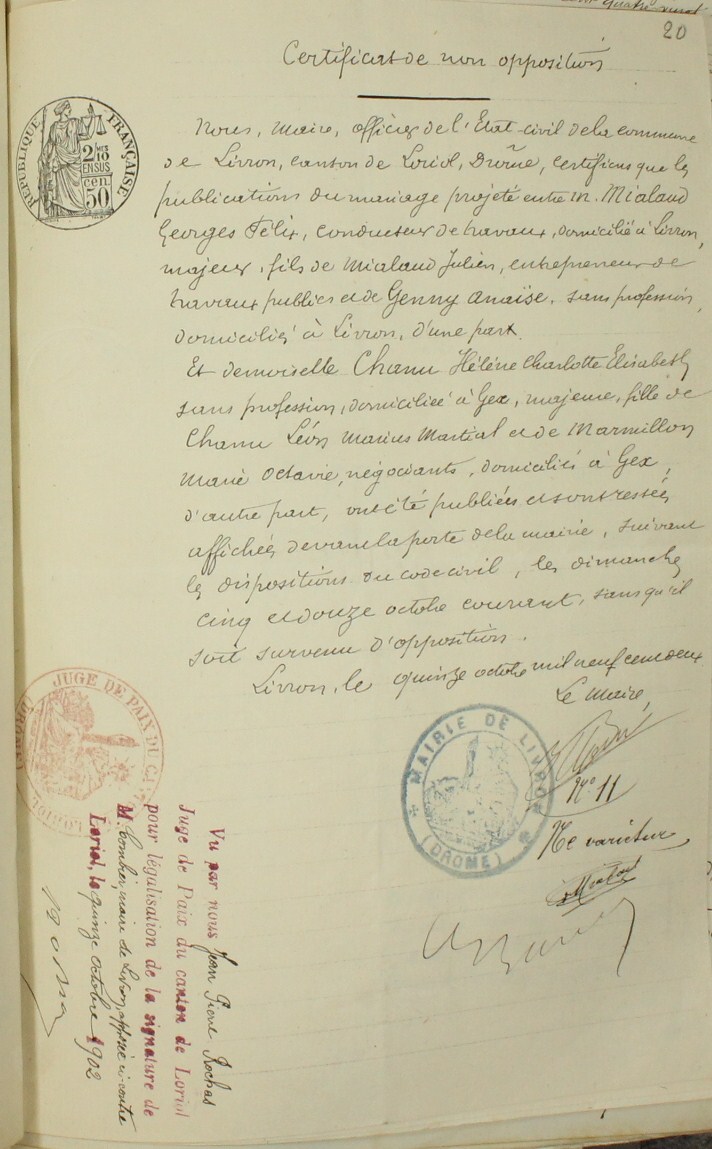 quatre-vingt
20
Certificat de non opposition
RÉPUBLIQUE FRANÇAISE
2/10 EN SUS
50 cen.
Nous, Maire, officier de l'Etat-civil de la commune
de Livron, canton de Loriol, Drôme, certifions que les
publications du mariage projeté entre M. Mialaud
Georges Félix, conducteur de travaux, domicilié à Livron,
majeur, fils de Mialaud Julien, entrepreneur de
travaux publics et de Genny Anaïse, sans profession,
domiciliés à Livron, d'une part.
Et demoiselle Chanu Hélène Charlotte Elisabeth
sans profession, domiciliée à Gex, majeure, fille de
Chanu Léon Marius Martial et de Marmillon
Marie Octavie, négociants, domiciliés à Gex,
d'autre part, ont été publiées et sont restées
affichées devant la porte de la mairie, suivant
les dispositions du code civil, les dimanches
cinq et douze octobre courant, sans qu'il
soit survenu d'opposition.
Livron, le quinze octobre mil neuf cent deux
Le Maire,
MAIRIE DE LIVRON
(DROME)
No 11
Ne varietur
Mialaud
JUGE DE PAIX DU
LORIOL (DROME)
Vu par nous Jean Pierre Rochas
Juge de Paix du canton de Loriol
pour légalisation de la signature de
M. Combier, maire de Livron, apposée ci-contre
Loriol, le quinze octobre 1902